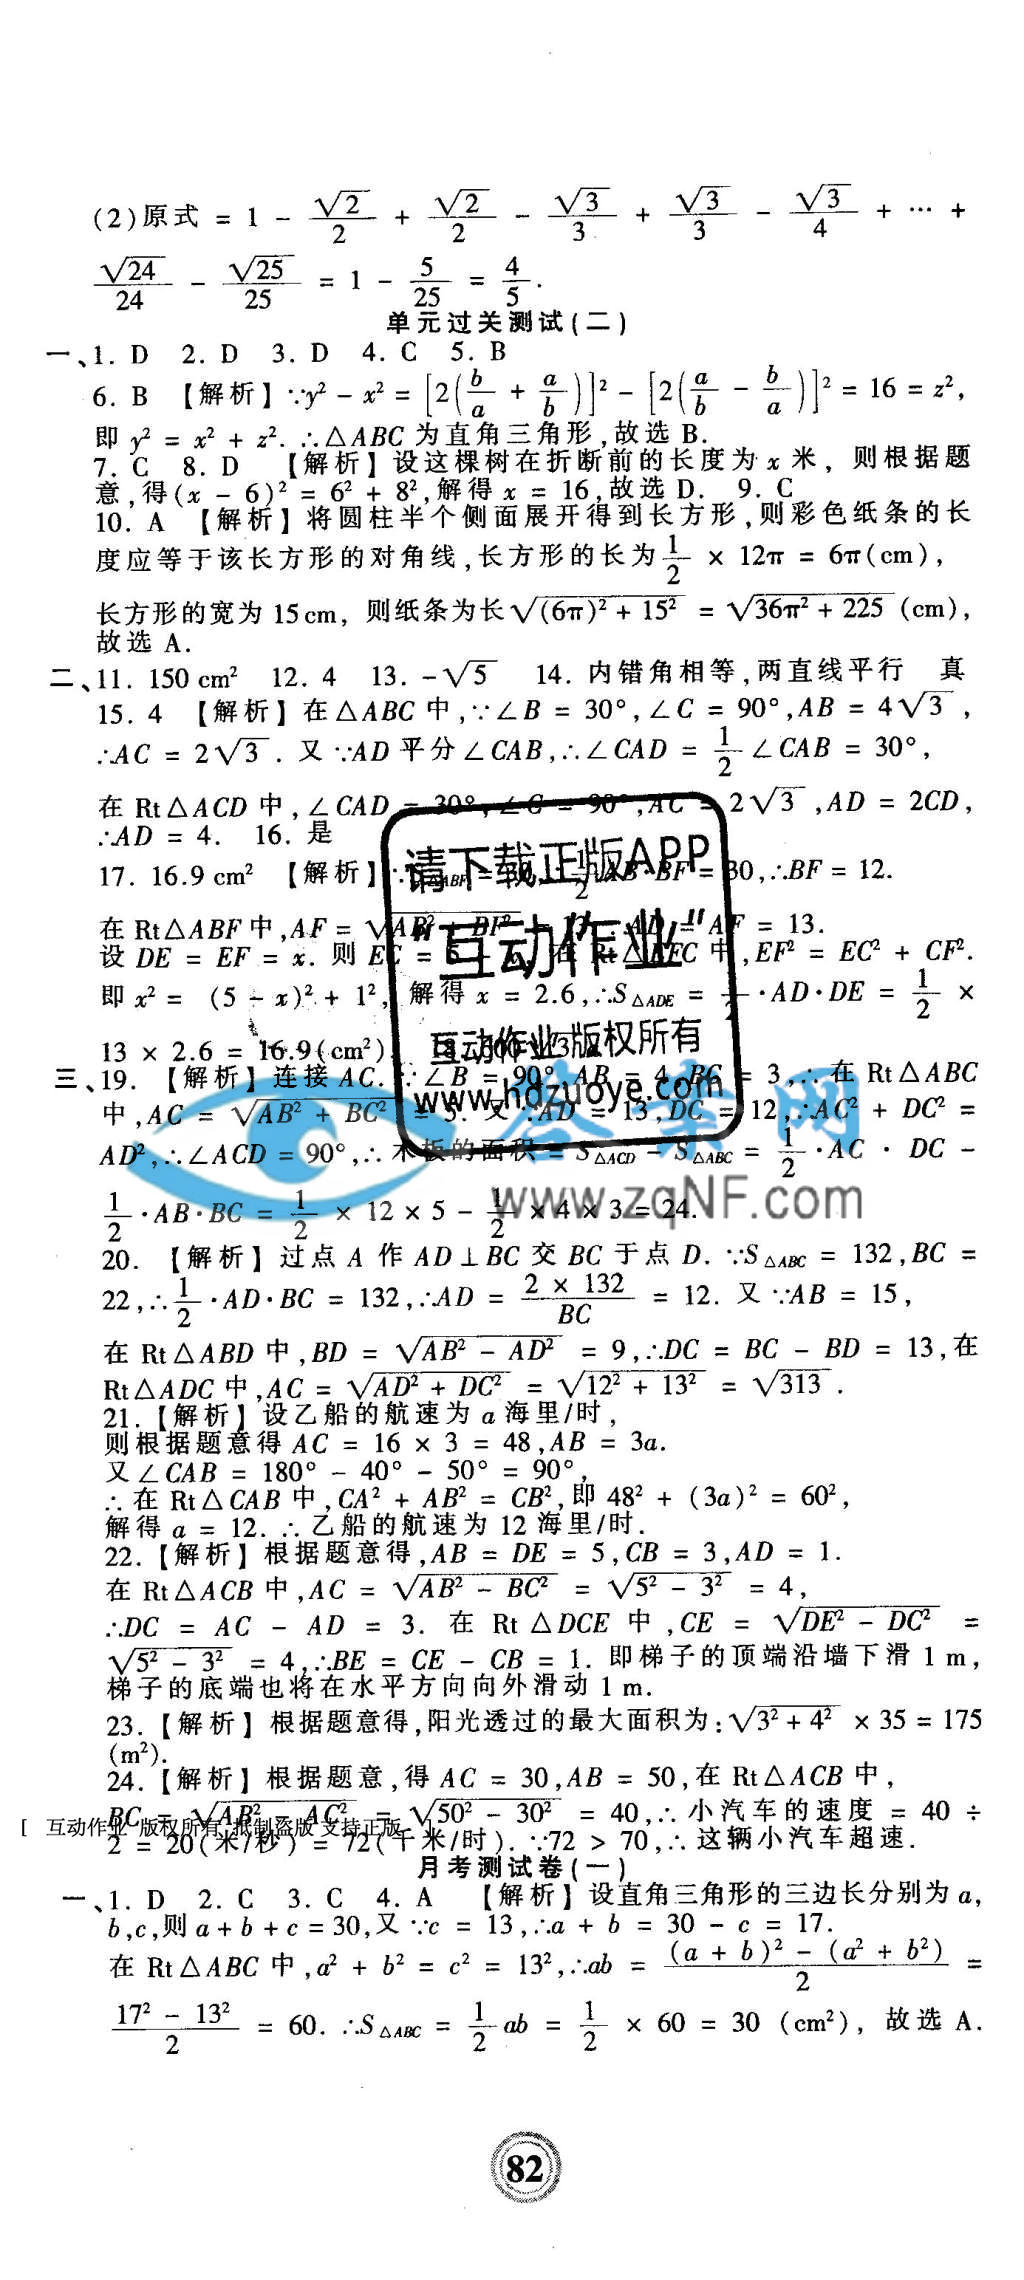 (2)原式 = 1 - √2/2 + √2/2 - √3/3 + √3/3 - √3/4 + … +
√24/24 - √25/25 = 1 - 5/25 = 4/5.
单元过关测试(二)
一、1. D 2. D 3. D 4. C 5. B
6. B 【解析】∵y² - x² = [2(b/a + a/b)]² - [2(a/b - b/a)]² = 16 = z²,
即 y² = x² + z². ∴△ABC 为直角三角形,故选 B.
7. C 8. D 【解析】设这棵树在折断前的长度为 x 米, 则根据题
意,得(x - 6)² = 6² + 8²,解得 x = 16,故选 D. 9. C
10. A 【解析】将圆柱半个侧面展开得到长方形,则彩色纸条的长
度应等于该长方形的对角线,长方形的长为 1/2 × 12π = 6π(cm),
长方形的宽为 15cm, 则纸条为长√((6π)² + 15²) = √(36π² + 225) (cm),
故选 A.
二、11. 150 cm² 12. 4 13. -√5 14. 内错角相等,两直线平行 真
15. 4 【解析】在△ABC 中,∵∠B = 30°,∠C = 90°,AB = 4√3,
∴AC = 2√3. 又∵AD 平分∠CAB,∴∠CAD = 1/2∠CAB = 30°,
在 Rt△ACD 中,∠CAD = 30°,∠C = 90°,AC = 2√3,AD = 2CD,
∴AD = 4. 16. 是
请下载正版APP
17. 16.9 cm² 【解析】∵S△ABF = 30, 1/2 AB·BF = 30,∴BF = 12.
在 Rt△ABF 中,AF = √(AB² + BF²) = 13, AD = AF = 13.
“互动作业”
设 DE = EF = x. 则 EC = 5 - x, 在 Rt△EFC 中,EF² = EC² + CF².
即 x² = (5 - x)² + 1², 解得 x = 2.6,∴S△ADE = 1/2·AD·DE = 1/2 ×
互动作业 版权所有
13 × 2.6 = 16.9(cm²).
三、19. 【解析】连接 AC. ∵∠B = 90°,AB = 4,BC = 3,∴在 Rt△ABC
www.hdzuoye.com
答案网
中,AC = √(AB² + BC²) = 5. 又∵AD = 13,DC = 12,∴AC² + DC² =
AD²,∴∠ACD = 90°,∴木板的面积 = S△ACD - S△ABC = 1/2·AC · DC -
www.zqNF.com
1/2·AB·BC = 1/2 × 12 × 5 - 1/2 × 4 × 3 = 24.
20. 【解析】过点 A 作 AD⊥BC 交 BC 于点 D. ∵S△ABC = 132,BC =
22,∴1/2·AD·BC = 132,∴AD = (2 × 132)/BC = 12. 又∵AB = 15,
在 Rt△ABD 中,BD = √(AB² - AD²) = 9,∴DC = BC - BD = 13,在
Rt△ADC 中,AC = √(AD² + DC²) = √(12² + 13²) = √313.
21.【解析】设乙船的航速为 a 海里/时,
则根据题意得 AC = 16 × 3 = 48,AB = 3a.
又∠CAB = 180° - 40° - 50° = 90°,
∴在 Rt△CAB 中,CA² + AB² = CB²,即 48² + (3a)² = 60²,
解得 a = 12. ∴乙船的航速为 12 海里/时.
22.【解析】根据题意得,AB = DE = 5,CB = 3,AD = 1.
在 Rt△ACB 中,AC = √(AB² - BC²) = √(5² - 3²) = 4,
∴DC = AC - AD = 3. 在 Rt△DCE 中,CE = √(DE² - DC²) =
√(5² - 3²) = 4,∴BE = CE - CB = 1. 即梯子的顶端沿墙下滑 1 m,
梯子的底端也将在水平方向向外滑动 1 m.
23.【解析】根据题意得,阳光透过的最大面积为:√(3² + 4²) × 35 = 175
(m²).
24.【解析】根据题意,得 AC = 30,AB = 50,在 Rt△ACB 中,
BC = √(AB² - AC²) = √(50² - 30²) = 40,∴小汽车的速度 = 40 ÷
[ 互动作业 版权所有 抵制盗版 支持正版 ]
2 = 20(米/秒) = 72(千米/时). ∵72 > 70,∴这辆小汽车超速.
月考测试卷(一)
一、1. D 2. C 3. C 4. A 【解析】设直角三角形的三边长分别为 a,
b,c,则 a + b + c = 30,又∵c = 13,∴a + b = 30 - c = 17.
在 Rt△ABC 中,a² + b² = c² = 13²,∴ab = ((a + b)² - (a² + b²))/2 =
(17² - 13²)/2 = 60. ∴S△ABC = 1/2 ab = 1/2 × 60 = 30 (cm²), 故选 A.
82